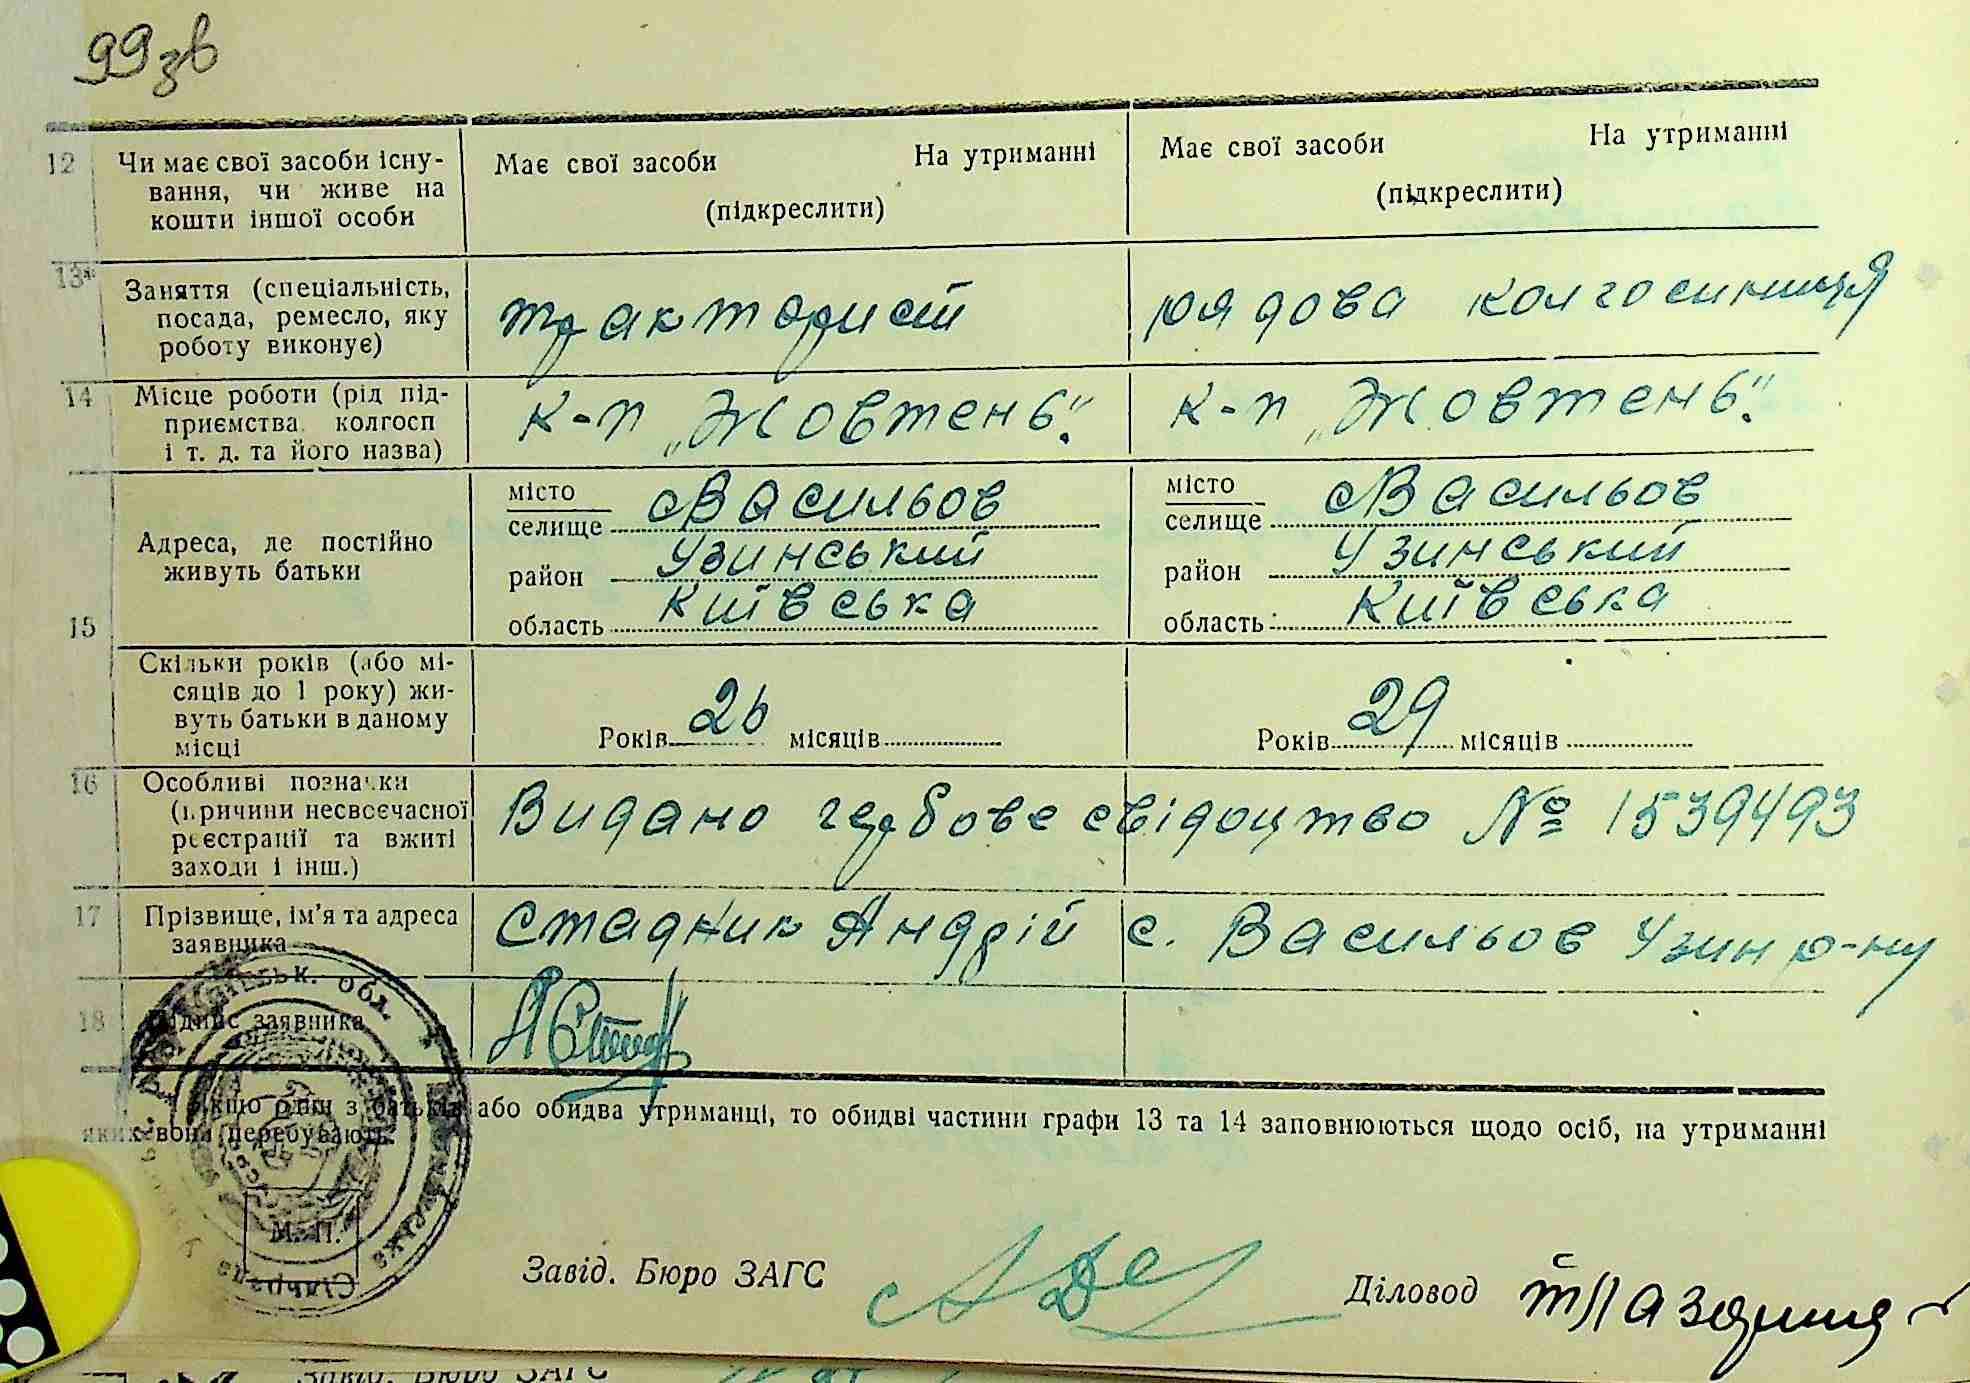 99зв
12 Чи має свої засоби існу-
вання, чи живе на
кошти іншої особи
Має свої засоби На утриманні
(підкреслити)
Має свої засоби На утриманні
(підкреслити)
13* Заняття (спеціальність,
посада, ремесло, яку
роботу виконує)
тракторист
рядова колгоспниця
14 Місце роботи (рід під-
приємства колгосп
і т. д. та його назва)
к-п „Жовтень".
к-п „Жовтень".
15 Адреса, де постійно
живуть батьки
місто
селище Васильов
район Узинський
область Київська
місто
селище Васильов
район Узинський
область Київська
Скільки років (або мі-
сяців до 1 року) жи-
вуть батьки в даному
місці
Років 26 місяців
Років 29 місяців
16 Особливі позначки
(причини несвоєчасної
реєстрації та вжиті
заходи і інш.)
Видано гербове свідоцтво № 1539493
17 Прізвище, ім'я та адреса
заявника
Стадник Андрій с. Васильов Узин р-ну
18 Підпис заявника
* Якщо один з батьків або обидва утриманці, то обидві частини графи 13 та 14 заповнюються щодо осіб, на утриманні
яких вони перебувають.
обл.
М. П.
Завід. Бюро ЗАГС
Діловод
Завід. Бюро ЗАГС